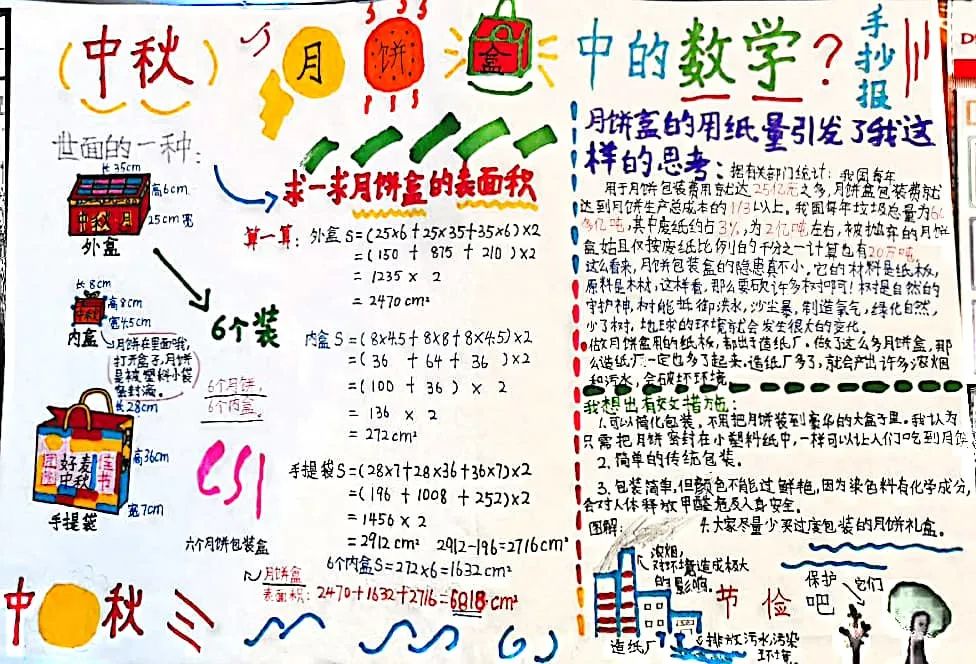 中秋 月饼盒 中的数学?
手抄报
世面的一种:
长35cm
高6cm
25cm宽
中秋月
外盒
长8cm
高8cm
宽4.5cm
内盒
月饼在里面哦,
打开盒子,月饼
是被塑料小袋
密封滴。
6个装
6个月饼,
6个内盒。
长28cm
高36cm
宽7cm
手提袋
六个月饼包装盒
求一求月饼盒的表面积
算一算:外盒S=(25×6+25×35+35×6)×2
=(150+875+210)×2
=1235×2
=2470cm²
内盒S=(8×4.5+8×8+8×4.5)×2
=(36+64+36)×2
=(100+36)×2
=136×2
=272cm²
手提袋S=(28×7+28×36+36×7)×2
=(196+1008+252)×2
=1456×2
=2912cm² 2912-196=2716cm²
6个内盒S=272×6=1632cm²
月饼盒
表面积:2470+1632+2716=6818cm²
中 秋
月饼盒的用纸量引发了我这
样的思考:据有关部门统计:我国每年
用于月饼包装费用就达25亿元之多,月饼盒包装费就
达到月饼生产总成本的1/3以上。我国每年垃圾总量为60
多亿吨,其中废纸约占3%,为2亿吨左右,被抛弃的月饼
盒始且仅按废纸比例的千分之一计算也有20万吨。
这么看来,月饼包装盒的隐患真不小。它的材料是纸板,
原料是木材,这样看,那么要砍许多树啊!树是自然的
守护神,树能抵御洪水,沙尘暴,制造氧气,绿化自然,
少了树,地球的环境就会发生很大的变化。
做月饼盒用的纸板,都出于造纸厂。做了这么多月饼盒,那
么造纸厂一定也多了起来。造纸厂多了,就会产出许多浓烟
和污水,会破坏环境
我想出有效措施:
1.可以简化包装,不用把月饼装到豪华的大盒子里。我认为
只需把月饼密封在小塑料纸中,一样可以让人们吃到月饼
2.简单的传统包装。
3.包装简单,但颜色不能过鲜艳,因为染色料有化学成分,
会对人体释放甲醛危及人身安全。
图解: 4.大家尽量少买过度包装的月饼礼盒。
浓烟,
对环境造成极大
的影响。
造纸厂
排放污水,污染
环境。
节俭
保护 它们
吧